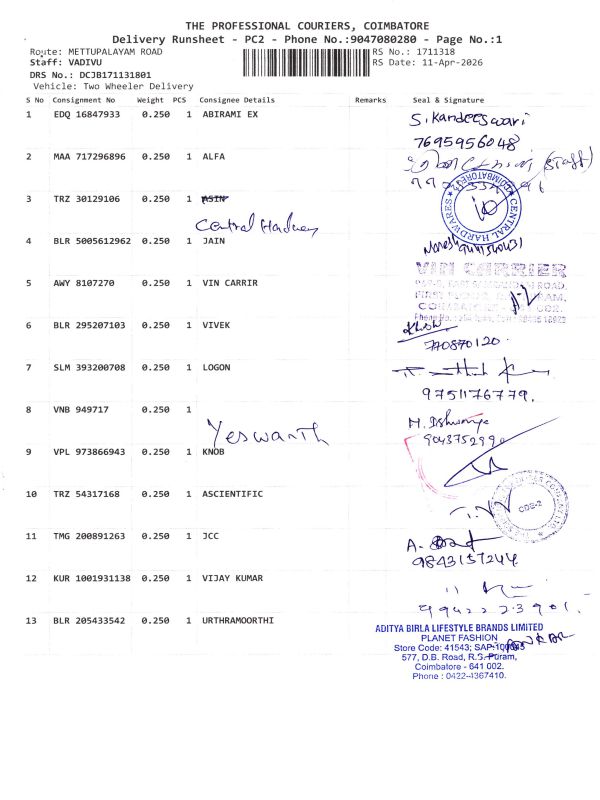 THE PROFESSIONAL COURIERS, COIMBATORE
Delivery Runsheet - PC2 - Phone No.:9047080280 - Page No.:1
Route: METTUPALAYAM ROAD RS No.: 1711318
Staff: VADIVU RS Date: 11-Apr-2026
DRS No.: DCJB171131801
Vehicle: Two Wheeler Delivery
S No Consignment No Weight PCS Consignee Details Remarks Seal & Signature
1 EDQ 16847933 0.250 1 ABIRAMI EX S. Kandeeswari
7695956048
2 MAA 717296896 0.250 1 ALFA (Staff)
3 TRZ 30129106 0.250 1 ASIN
CENTRAL HARDWARES COIMBATORE
Central Hadware
4 BLR 5005612962 0.250 1 JAIN Naresh
5 AWY 8107270 0.250 1 VIN CARRIR VIN CARRIER
6 BLR 295207103 0.250 1 VIVEK
770870120
7 SLM 393200708 0.250 1 LOGON
9751176779.
8 VNB 949717 0.250 1 M. Ishwarya
Yeswanth 9043752990
9 VPL 973866943 0.250 1 KNOB
10 TRZ 54317168 0.250 1 ASCIENTIFIC CDE-2
11 TMG 200891263 0.250 1 JCC A.
9843157244
12 KUR 1001931138 0.250 1 VIJAY KUMAR
9942223901.
13 BLR 205433542 0.250 1 URTHRAMOORTHI ADITYA BIRLA LIFESTYLE BRANDS LIMITED
PLANET FASHION
Store Code: 41543; SAP:
577, D.B. Road, R.S. Puram,
Coimbatore - 641 002.
Phone : 0422-4367410.